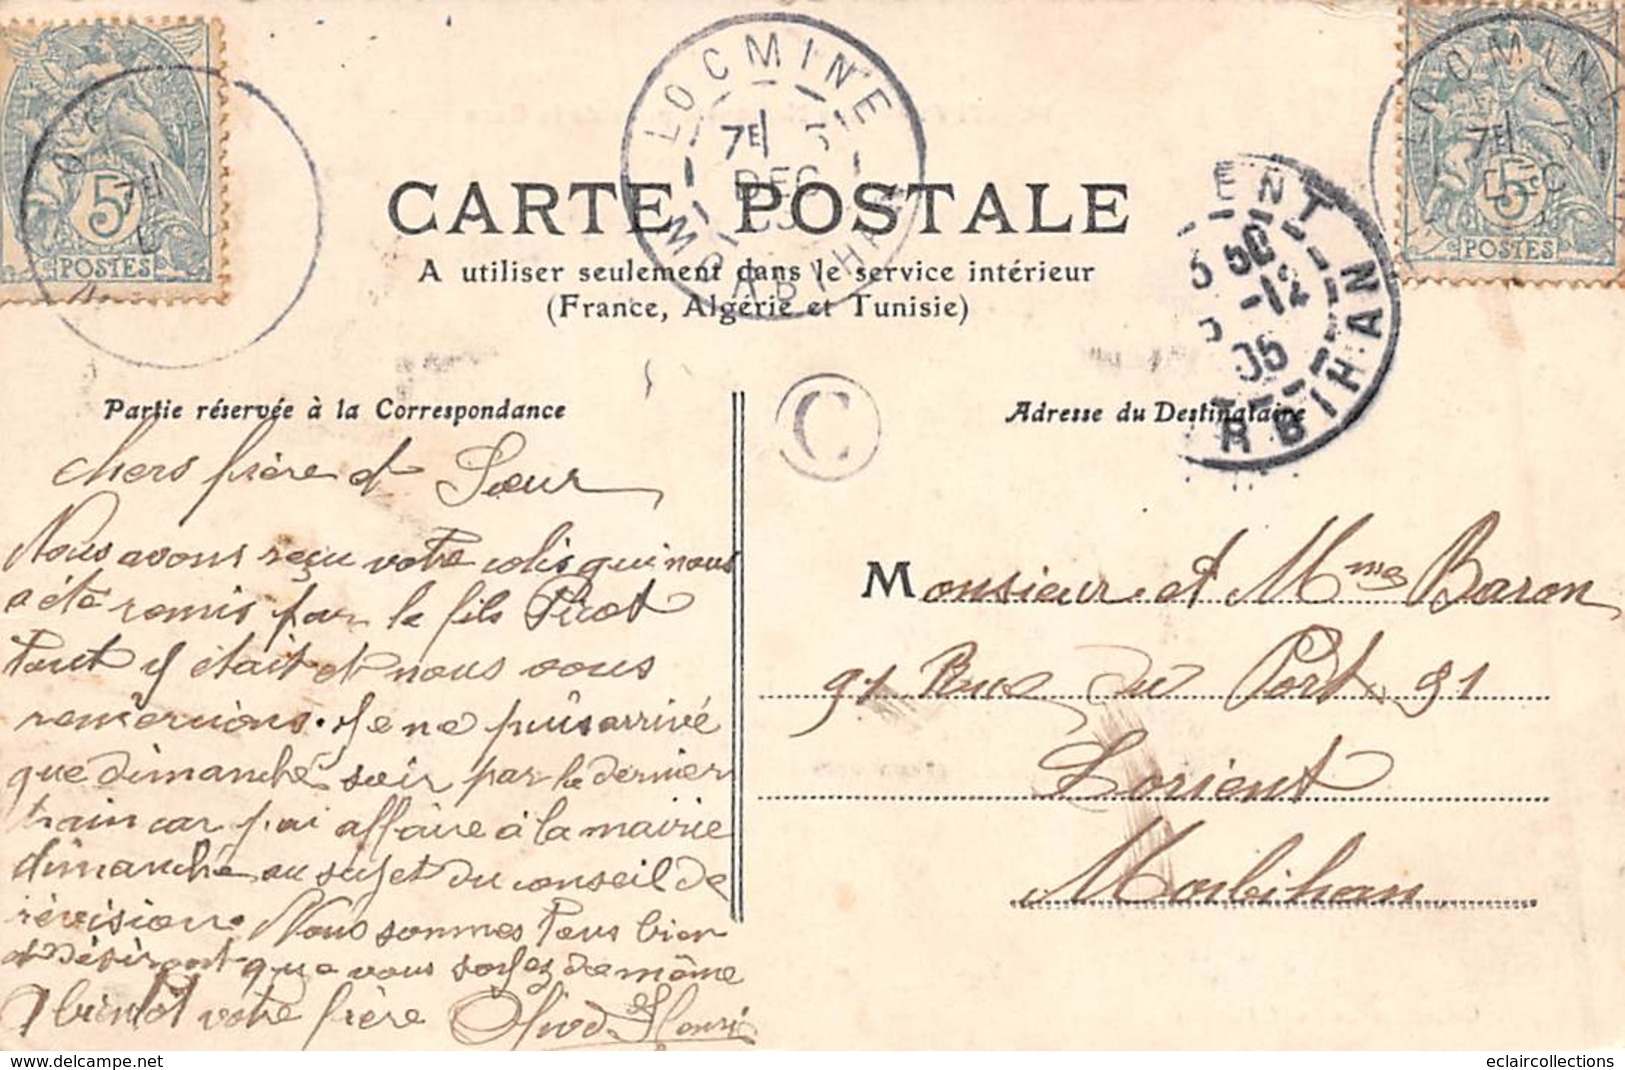 5c
POSTES
LOCMINE
7E 5
DEC
MORBIHAN
5c
POSTES
CARTE POSTALE
A utiliser seulement dans le service intérieur
(France, Algérie et Tunisie)
ENT
50
-12
06
RBIHAN
Partie réservée à la Correspondance
C
Adresse du Destinataire
chers frère et Sœur
Nous avons reçu votre colis qui nous
a été remis par le fils Picot
tout y était et nous vous
remercions. Je ne puis arrivé
que dimanche soir par le dernier
train car j'ai affaire à la mairie
dimanche au sujet du conseil de
révision. Nous sommes tous bien
et désirant que vous soyez de même
A bientôt votre frère
Monsieur et Mme Baron
91 Rue du Port 91
Lorient
Morbihan
eclaircollections
www.delcampe.net